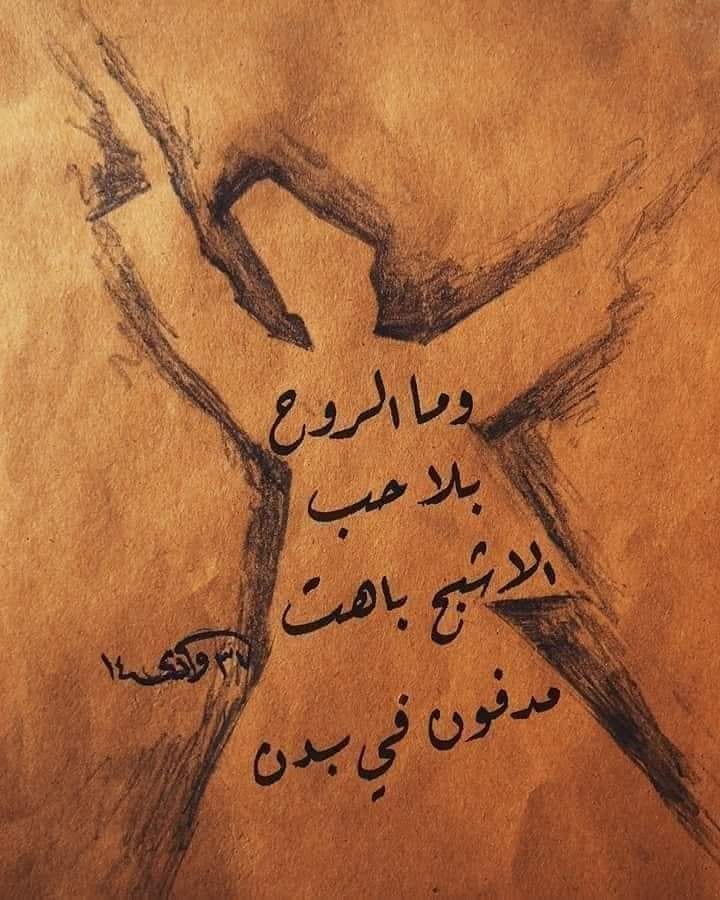 وما الروح
بلا حب
الا شبح باهت
مدفون في بدن